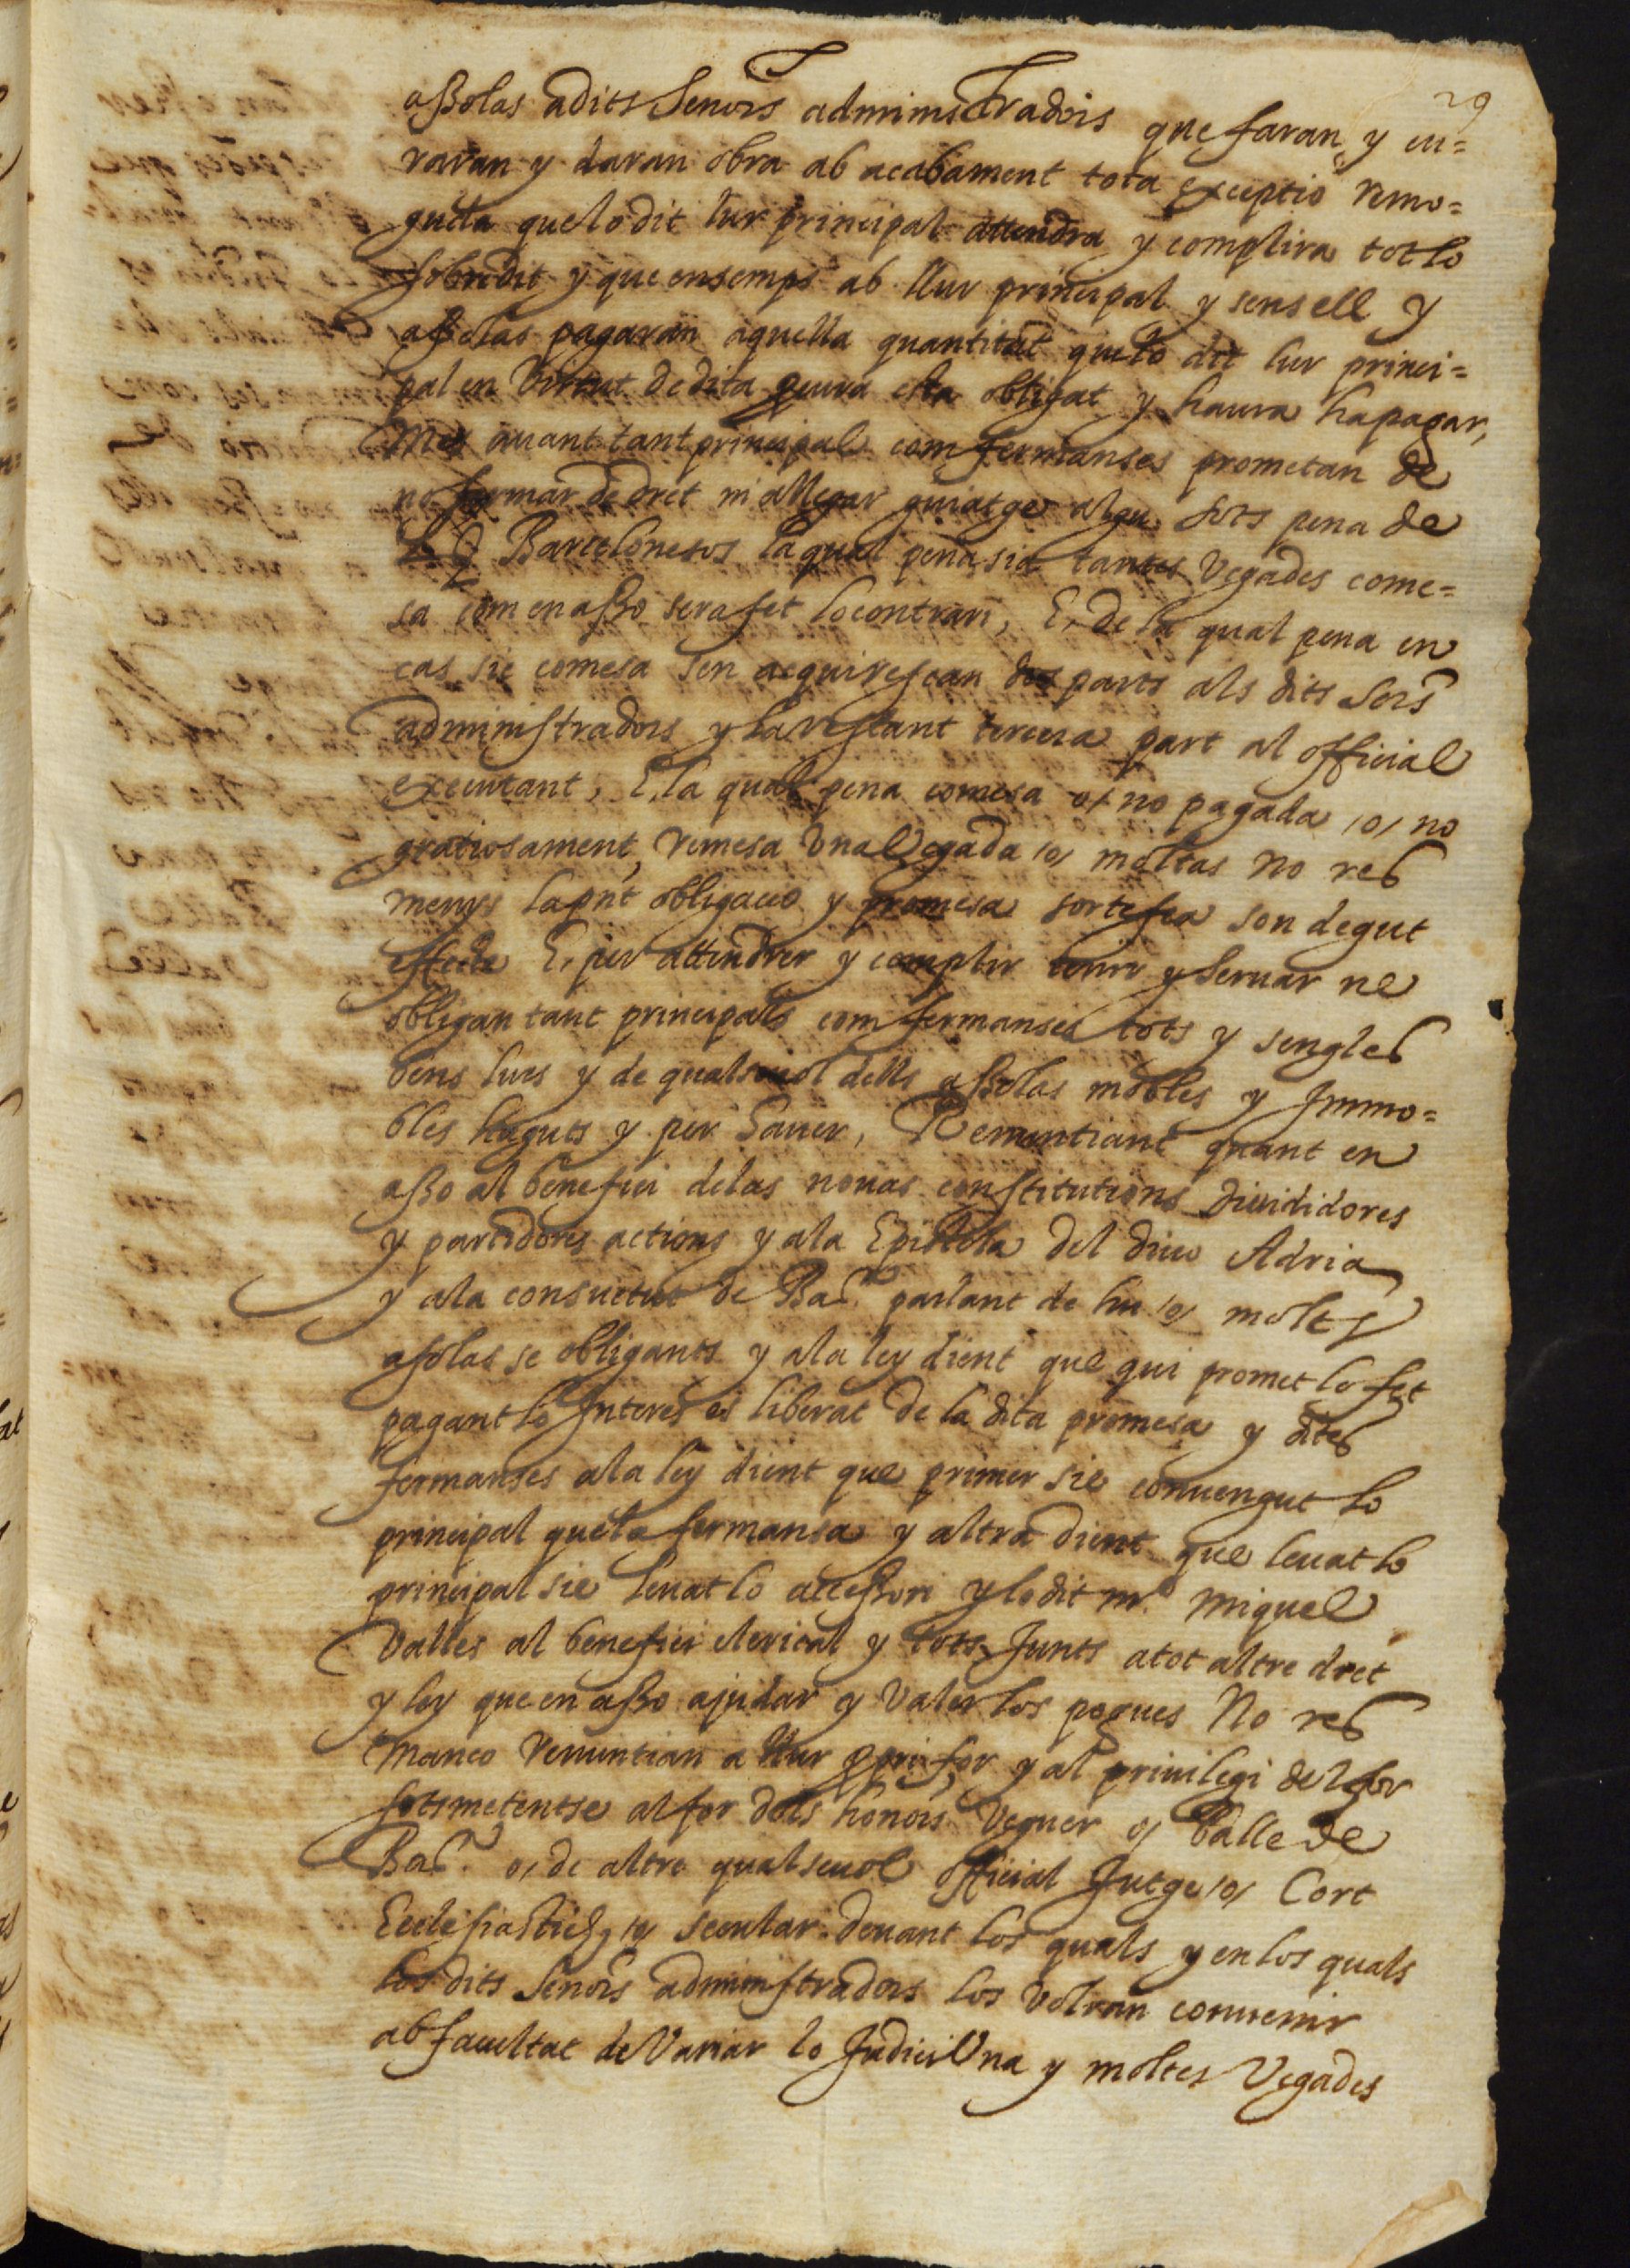 29
aßolas adits Senors administradors que faran, y cu=
raran y daran obra ab acabament tota exceptio remo=
guda que lo dit lur principal attendra y complira tot lo
sobredit y que ensemps ab llur principal y sens ell y
assolas pagaran aquella quantitat que lo dit lur princi=
pal en virtut de dita esta obligat y haura ha pagar,
Mes auant tant principal com fermanses prometan de
no fermar de dret ni allegar guiatge algu sots pena de
Barcelonesos la qual pena sia tantes vegades come=
sa com en aßo sera fet lo contrari, E, de la qual pena en
cas sie comesa sen acquirescan dos parts als dits Sors
administradors y la restant tercera part al official
executant, E, la qual pena comesa o, no pagada /o/ no
gratiosament remesa Vna Vegada /o/ moltas no res
menys la pnt obligacio y promesa sortesca son degut
effecte E, per attendrer y complir tenir y seruar ne
obligan tant principals com fermanses tots y sengles
bens lurs y de qualseuol dells aßolas mobles y Immo=
bles haguts y per hauer, Renuntiant quant en
aßo al benefici delas nouas constitutions diuididores
y partidores actions y ala Epistola del diuo Adria
y ala consuetut de Bar.ª parlant de hu /o/ molts
asolas se obligants y ala ley dient que qui promet lo fet
pagant lo Interes es liberat de la dita promesa y dites
fermanses ala ley dient que primer sie conuengut lo
principal que la fermansa y altra dient que leuat lo
principal sie leuat lo accessori y lo dit m.º Miquel
Valles al benefici clerical y tots Junts atot altre dret
y ley que en aßo ajudar y Valer los pogues No res
manco renuntian a llur ppri for y al priuilegi del for
sotsmetentse al for dels honors Veguer o, Balle de
Bar.ª o, de altre qualseuol official Jutge /o/ Cort
Ecclesiastich /o/ secular deuant los quals y en los quals
los dits Senors administradors los Volran conuenir
ab facultat de Variar lo Judici Vna y moltes Vegades